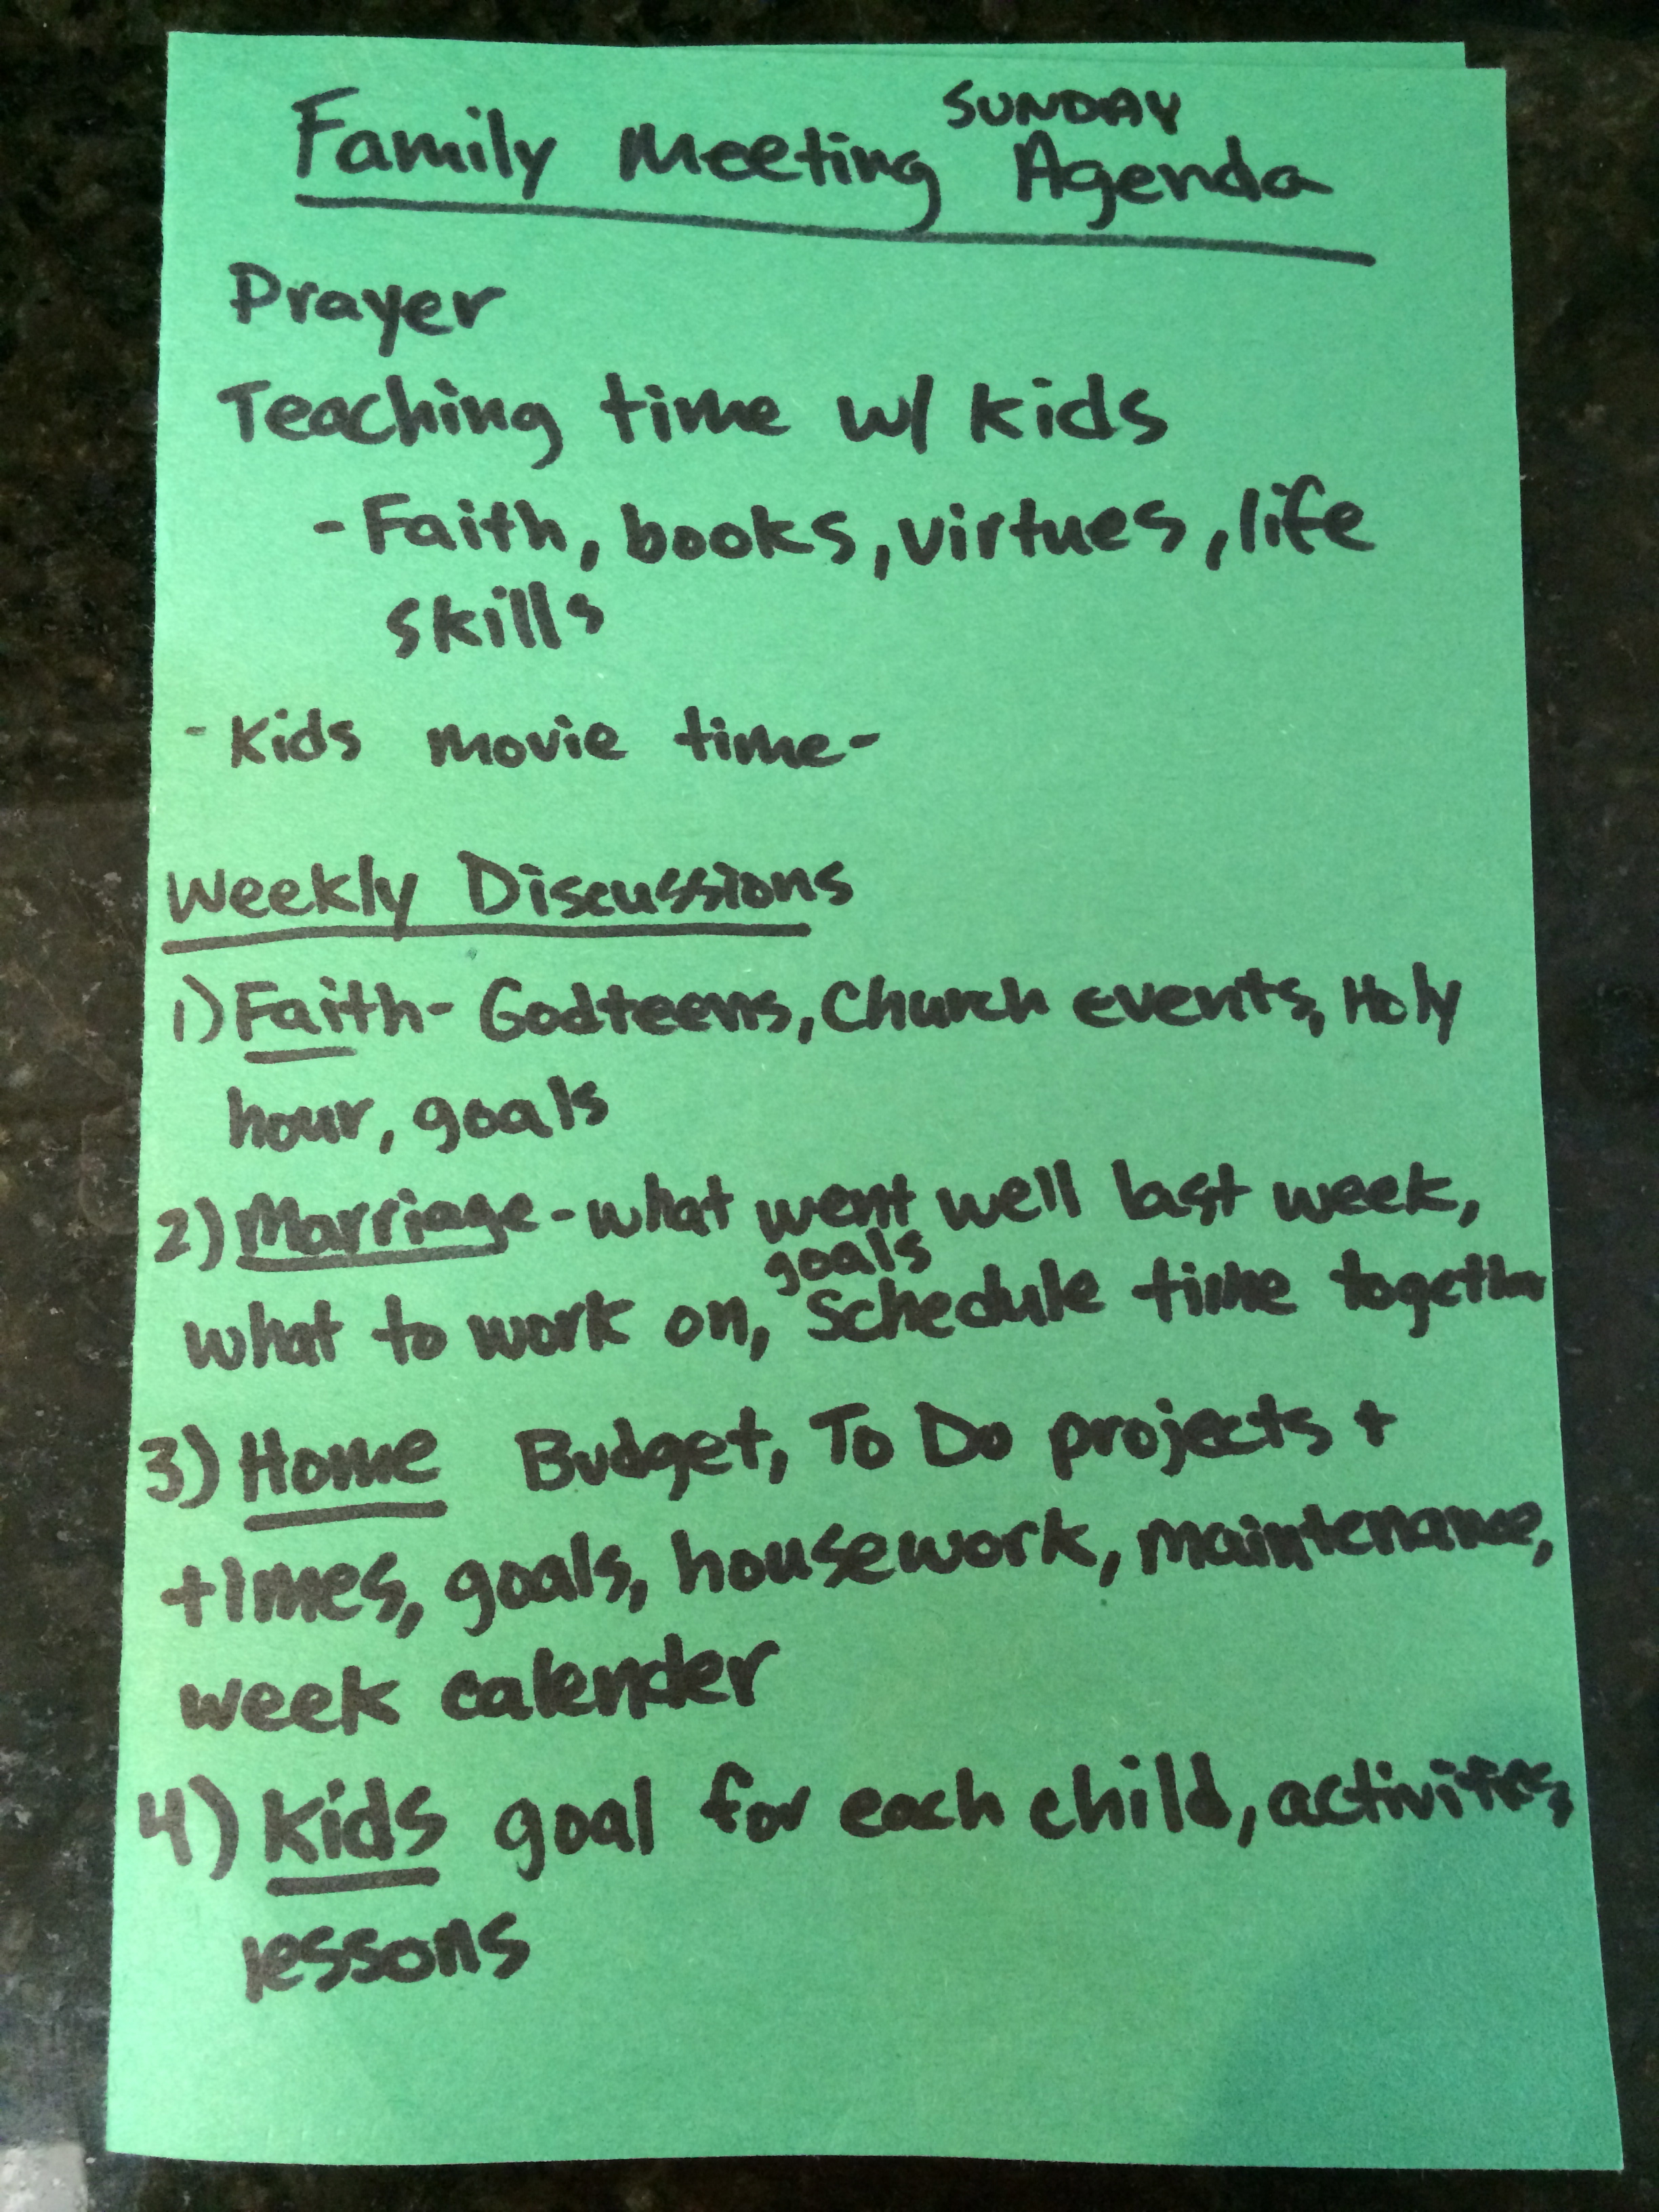 Family Meeting SUNDAY Agenda
Prayer
Teaching time w/ kids
- Faith, books, virtues, life
skills
- Kids movie time -
Weekly Discussions
1) Faith - Godteens, Church events, Holy
hour, goals
2) Marriage - what went well last week,
goals
what to work on, Schedule time together
3) Home Budget, To Do projects +
times, goals, housework, maintenance,
week calender
4) Kids goal for each child, activities,
lessons